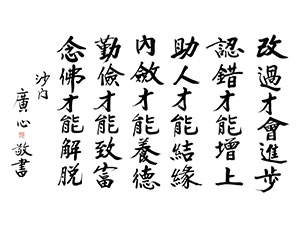 改過才會進步
認錯才能增上
助人才能結緣
內斂才能養德
勤儉才能致富
念佛才能解脫
沙門
廣心
敬書